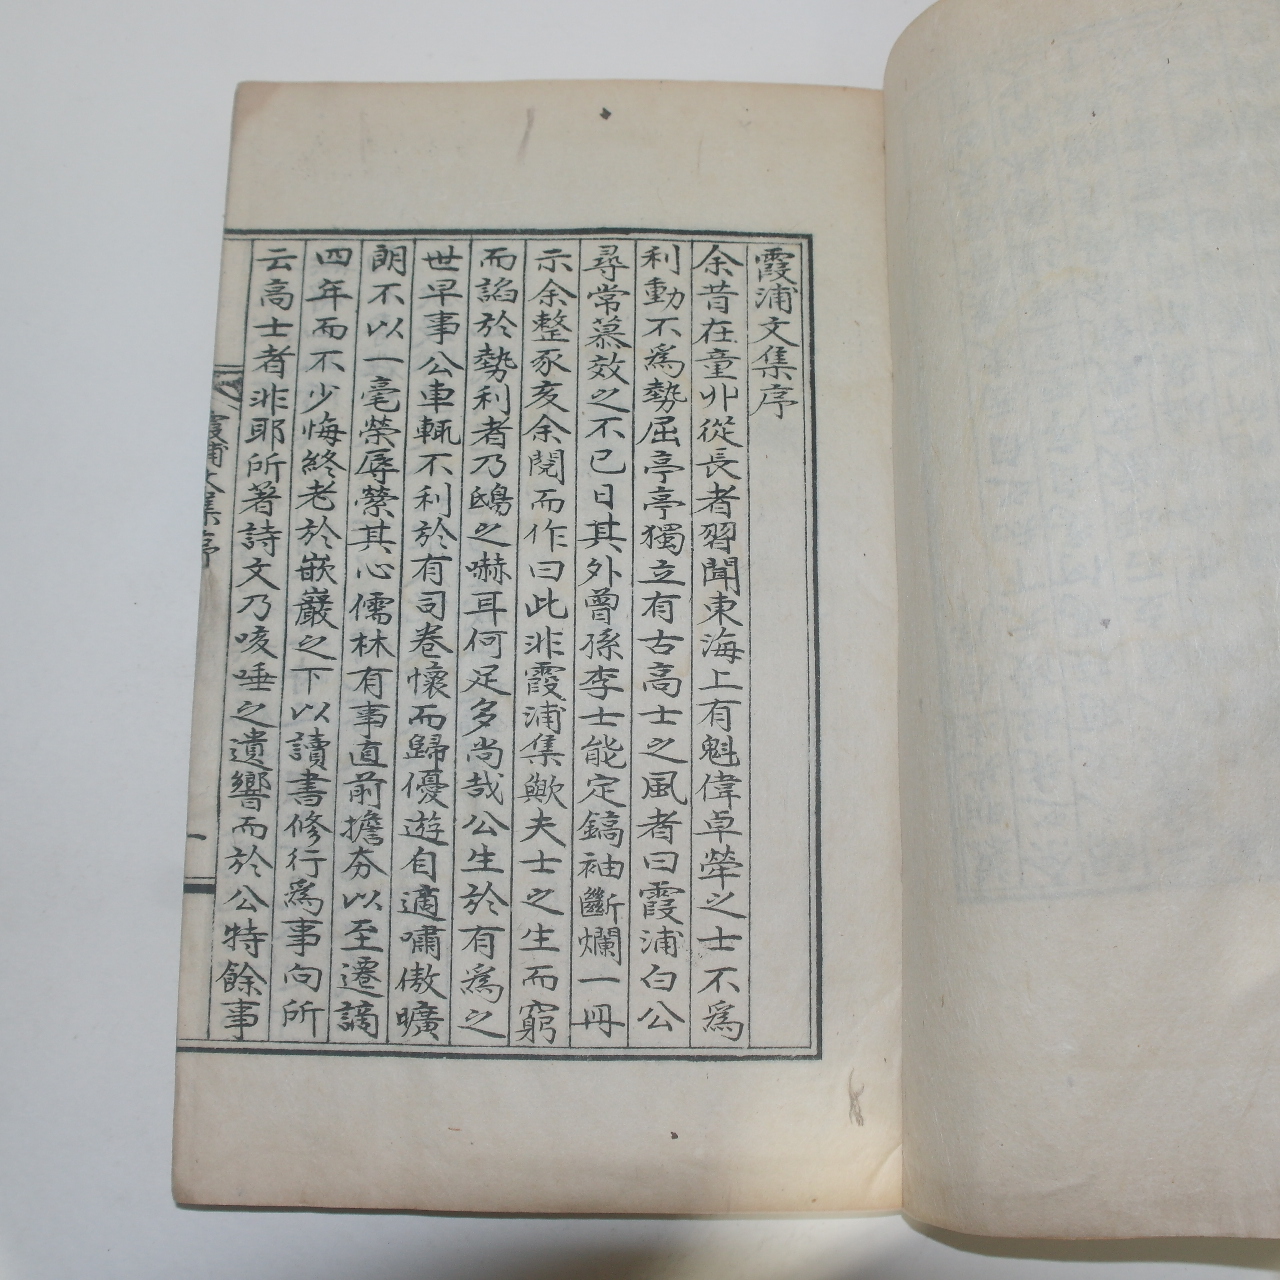 霞浦文集序
余昔在童丱從長者習聞東海上有魁偉卓犖之士不爲
利動不爲勢屈亭亭獨立有古高士之風者曰霞浦白公
尋常慕效之不已日其外曾孫李士能定鎬袖斷爛一冊
示余整豕亥余閱而作曰此非霞浦集歟夫士之生而窮
而謟於勢利者乃鴟之嚇耳何足多尚哉公生於有爲之
世早事公車輒不利於有司卷懷而歸優遊自適嘯傲曠
朗不以一毫榮辱縈其心儒林有事直前擔夯以至遷謫
四年而不少悔終老於嵌巖之下以讀書修行爲事向所
云高士者非耶所著詩文乃咳唾之遺響而於公特餘事
霞浦文集序
一